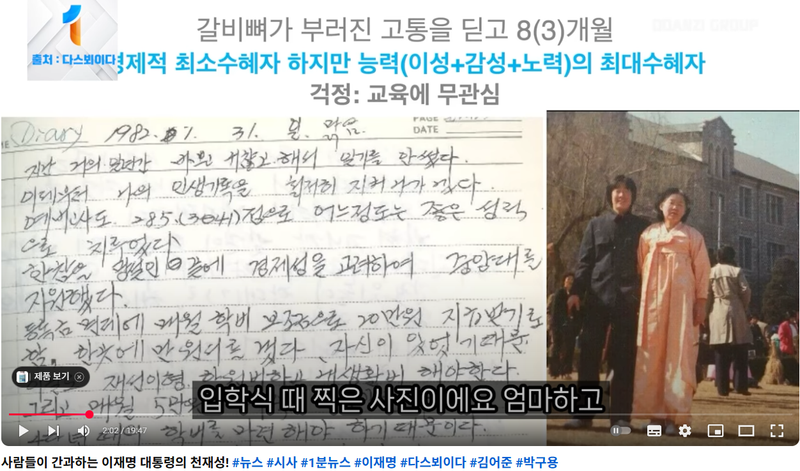 갈비뼈가 부러진 고통을 딛고 8(3)개월
1
출처 : 다스뵈이다
경제적 최소수혜자 하지만 능력(이성+감성+노력)의 최대수혜자
걱정: 교육에 무관심
Diary 1982. 1. 31. 맑음.
PAGE
DATE
지난 거의 한달간 하는 귀찮고 해서 일기를 안썼다.
이제부터 나의 인생기록을 철저히 지켜나가겠다.
예비고사도 285.(304)점으로 어느정도는 좋은 성적
으로 치루었다
한참을 끝에 경제성을 고려하여 중앙대를
지원했다.
등록금 면제에 매월 학비 보조금으로 20만원 지급받기로
한 만원대를 자신이 있었기때문
재선이형 해야한다.
그리고 매월 5만
학비를 마련해야 하기 때문이다.
제품 보기
입학식 때 찍은 사진이에요 엄마하고
2:02 / 19:47
사람들이 간과하는 이재명 대통령의 천재성! #뉴스 #시사 #1분뉴스 #이재명 #다스뵈이다 #김어준 #박구용